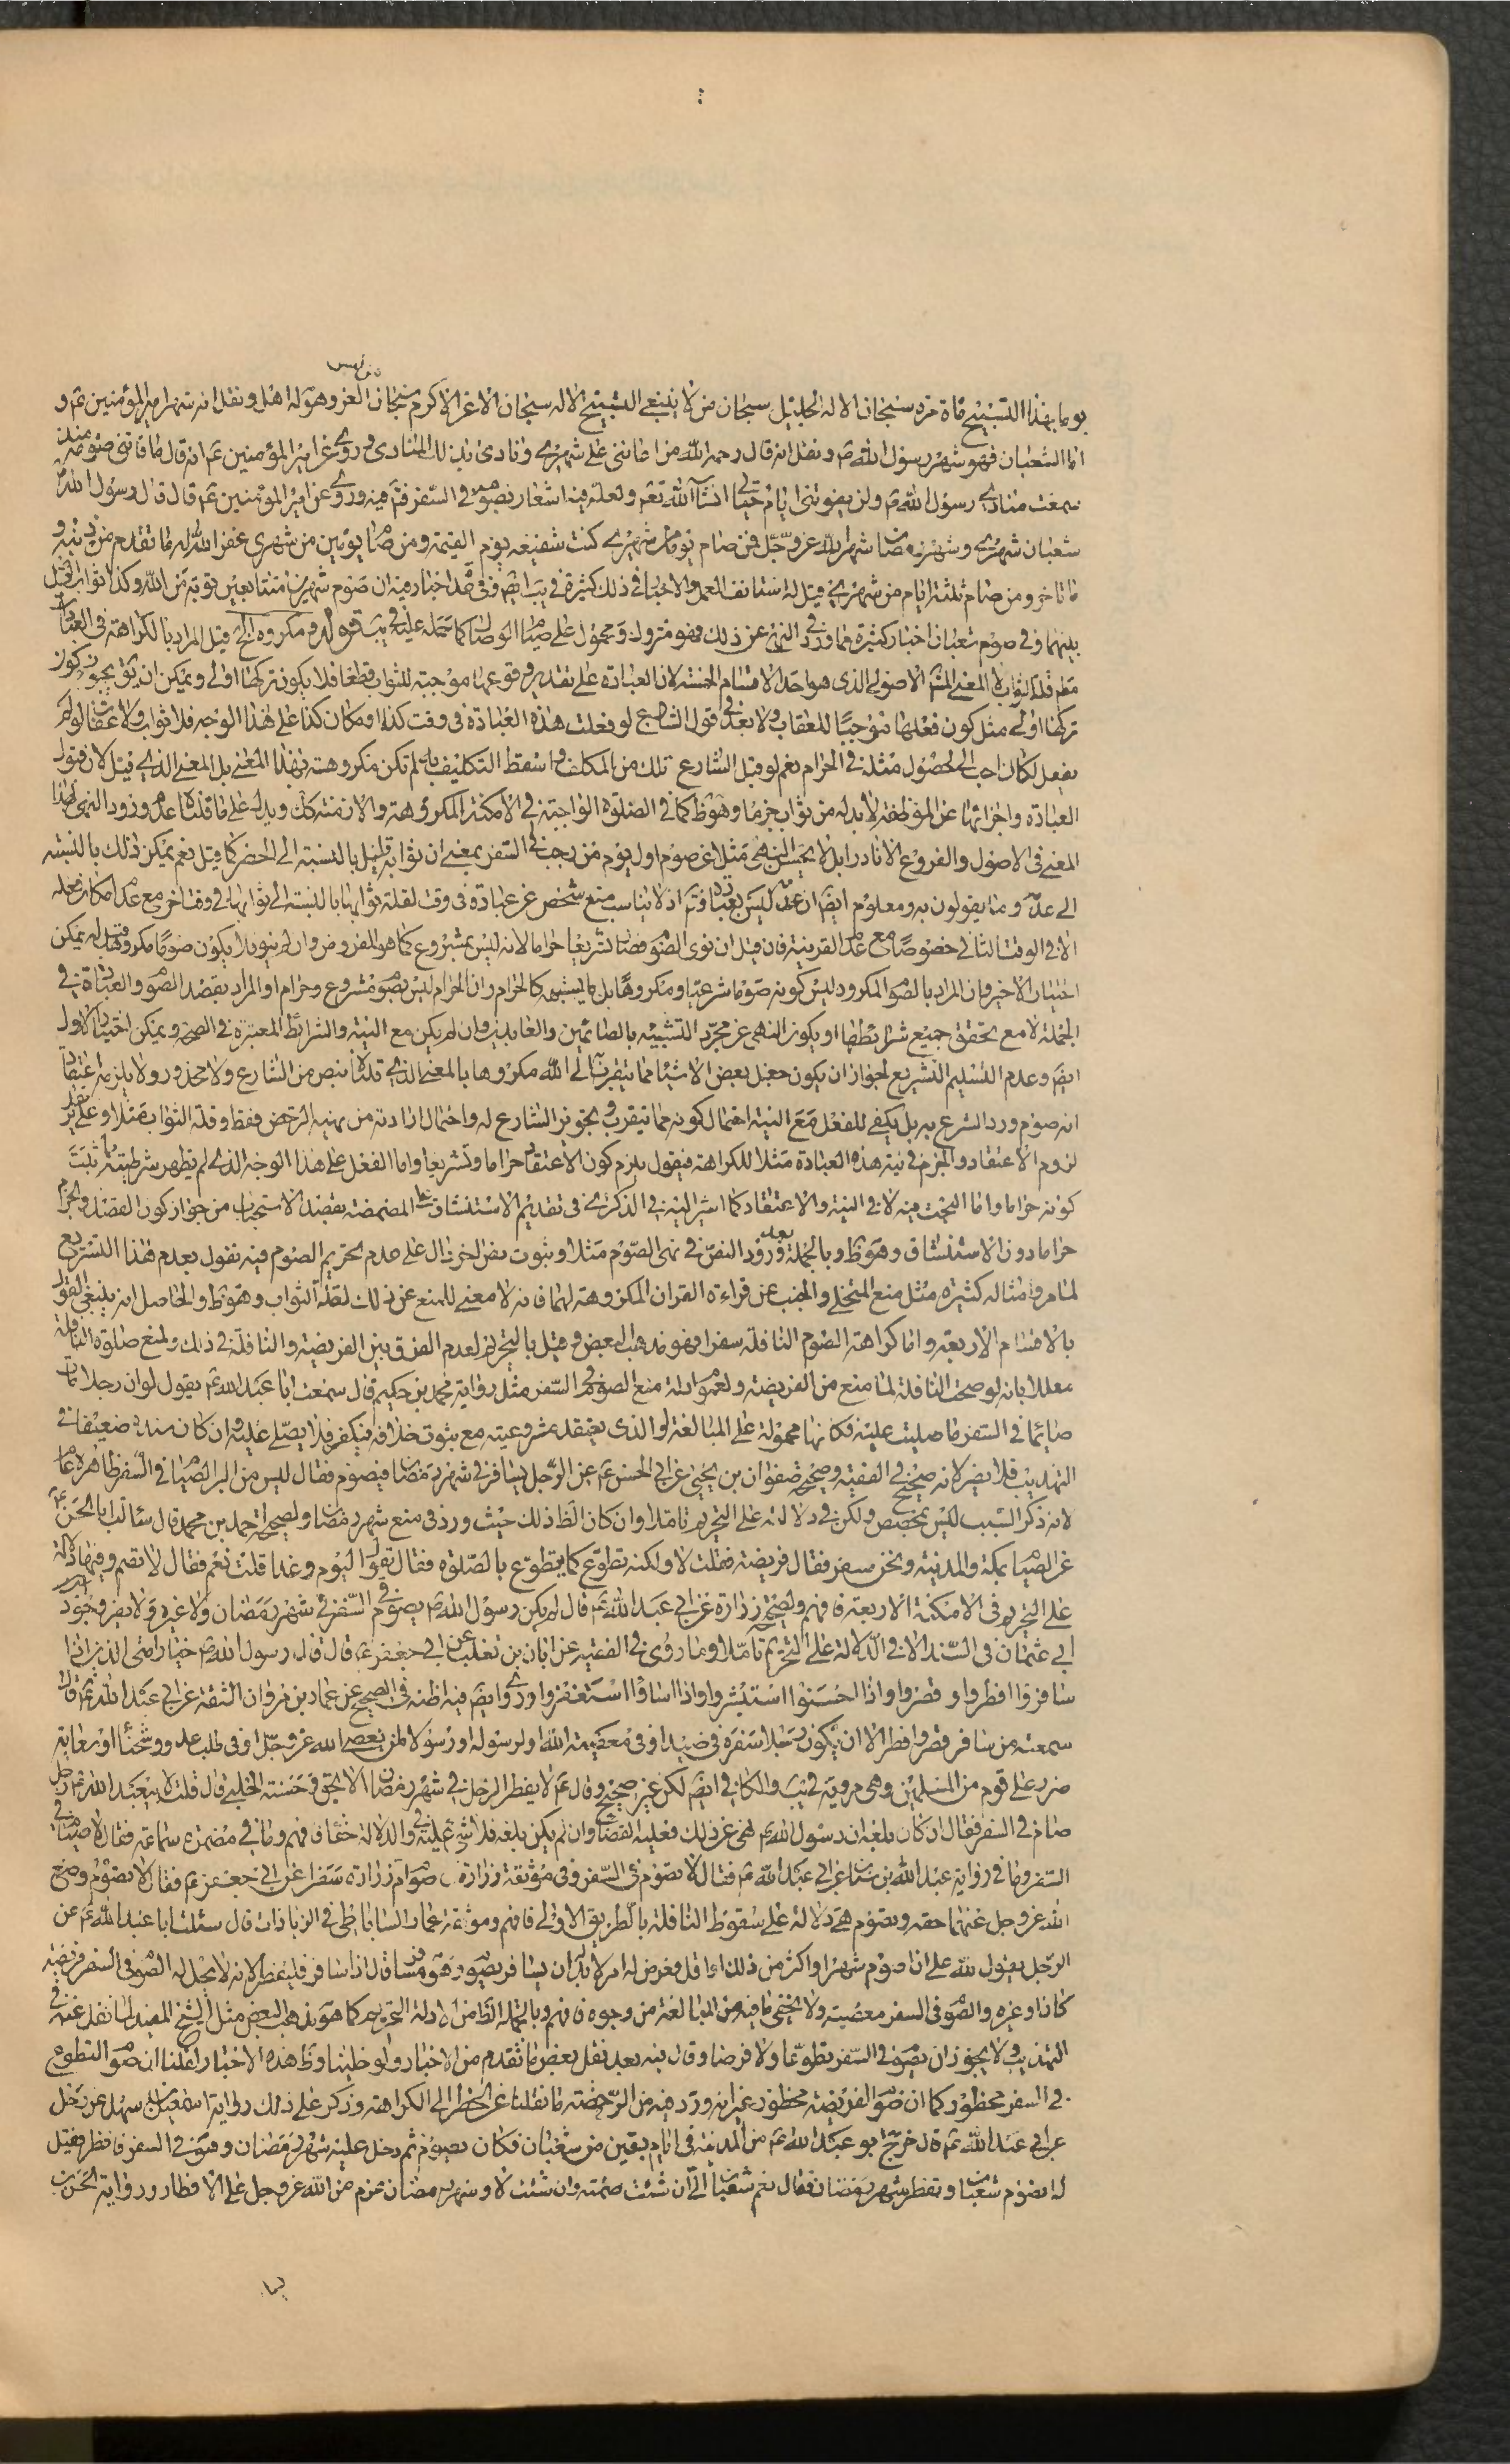 يوما بهذا التسبيح مأة مرة سبحان الاله الجليل سبحان من لا ينبغي التسبيح الا له سبحان الاعز الاكرم سبحان من لبس العز وهو له اهل ونقل انه شهر امير المؤمنين ع و
اما الشعبان فهو شهر رسول الله ص ونقل انه قال رحم الله من اعانني على شهري ونادى بذلك المنادي وروى عن امير المؤمنين ع انه قال ما فاتني صومه منذ
سمعت منادي رسول الله ص ولن يفوتني ايام حياتي انشآء الله تع ولعله فيه اشعار بصومه في السفر فتم فيه وروى عن امير المؤمنين ع قال قال رسول الله ص
شعبان شهري وشهر رمضان شهر الله عز وجل فمن صام يوما من شهري كنت شفيعه يوم القيمة ومن صام يومين من شهري غفر الله له ما تقدم من ذنبه و
ما تاخر ومن صام ثلثة ايام من شهري قيل له استانف العمل والاخبار في ذلك كثيرة في يب ايضا ففي هذا اخبار فيه ان صوم شهرين متتابعين توبة من الله وكذا ثواب الفصل
بينهما وفي صوم شعبان اخبار كثيرة فما ورد في النهي عن ذلك فهو متروك ومحمول على صيام الوصال كما حمله عليه في يب قوله ومكروه الخ قيل المراد بالكراهة في العبادات
مطلقا قلة الثواب لا المعنى الاصولي الذي هو احد الاقسام الخمسة لان العبادة على تقدير وقوعها موجبة للثواب قطعا فلا يكون تركها اولى ويمكن ان يق يجوز كون
تركها اولى مثل كون فعلها موجبا للعقاب ولا بعد في قول الشارع لو فعلت هذه العبادة في وقت كذا او مكان كذا على هذا الوجه فلا ثواب ولا عقاب ولو لم
يفعل لكان احب الى لحصول مثله في الحرام نعم لو قبل الشارع تلك من المكلف واسقط التكليف به لم تكن مكروهة بهذا المعنى بل المعنى الذي قيل لان قبول
العبادة واجزائها عن الموظفة لا بد له من ثواب جزما وهو ظ كما في الصلوة الواجبة في الامكنة المكروهة والازمنة كك ويدل على ما قلناه عدم ورود النهي لهذا
المعنى في الاصول والفروع الا نادرا بل لا يحسن النهي مثلا عن صوم اول يوم من رجب في السفر بمعنى ان ثوابه قليل بالنسبة الى الحضر كما قيل نعم يمكن ذلك بالنسبة
الى بدله وما يقولون به ومعلوم ايضا ان عدله ليس بعبادة وتم اذ لا يناسب منع شخص عن عبادة في وقت لقلة ثوابها بالنسبة الى ثوابها في وقت اخر مع عدم امكان فعله
الا في الوقت الثاني خصوصا مع عدم القرينة فان قيل ان نوى الصوم فصار تشريعا حراما لانه ليس بمشروع كما هو المفروض وان لم ينو فلا يكون صوما مكروها قيل له يمكن
اختيار الاخير وان المراد بالصوم المكروه ليس كونه صوما شرعيا ومكروها بل ما يشبهه كالحرام وان الحرام ليس بصوم مشروع وحرام او المراد بقصد الصوم والعبادة في
الجملة لا مع تحقق جميع شرائطها او يكون النهي عن مجرد التشبيه بالصائمين والعابدين وان لم يكن مع النية والشرائط المعتبرة في الصحة ويمكن اختيار الاول
ايضا وعدم التسليم التشريع لجواز ان يكون جعل بعض الاشياء مما يتقرب به الى الله مكروها بالمعنى الذي قلناه بنص من الشارع ولا محذور ولا يلزمه اعتقاد
انه صوم ورد الشرع به بل يكفي للفعل مع النية احتمال كونه مما يتقرب ويجوز الشارع له واحتمال ارادته من نهيه الرخص فقط وقلة الثواب مثلا وعلى تقدير
لزوم الاعتقاد والجزم في نية هذه العبادة مثلا للكراهة فيقول يلزم كون الاعتقاد حراما وتشريعا واما الفعل على هذا الوجه الذي لم يظهر شرطيته ما ثبت
كونه حراما واما البحث فيه لا في النية والاعتقاد كما اشير اليه في الذكرى في تقديم الاستنشاق على المضمضة بقصد الاستحباب من جواز كون القصد والجزم
حراما دون الاستنشاق وهو ظ وبالجملة بعد ورود النص في نهي الصوم مثلا وثبوت نص اخر دال على عدم تحريم الصوم فيه نقول بعدم هذا التشريع
لما مر وامثاله كثيرة مثل منع المتخلي والجنب عن قراءة القران المكروهة لهما فانه لا معنى للمنع عن ذلك لقلة الثواب وهو ظ والحاصل انه ينبغي القول
بالاقسام الاربعة واما كراهة الصوم النافلة سفرا فهو مذهب البعض وقيل بالتحريم لعدم الفرق بين الفريضة والنافلة في ذلك ولمنع صلوة النافلة
معللا بانه لو صحت النافلة لما منع من الفريضة ولعموم ادلة منع الصوم في السفر مثل رواية محمد بن حكيم قال سمعت ابا عبد الله ع يقول لو ان رجلا مات
صائما في السفر ما صليت عليه فكانها محمولة على المبالغة او الذي يعتقد مشروعيته مع ثبوت خلافه فيكفر فلا يصلى عليه وان كان سنده ضعيفا في
التهذيب فلا يضر لانه صحيح في الفقيه وصحيحة صفوان بن يحيى عن ابي الحسن ع عن الرجل يسافر في شهر رمضان فيصوم فقال ليس من البر الصيام في السفر ظاهره عام
لانه ذكر السبب ليس بمخصص ولكن في دلالته على التحريم تاملا وان كان الظ ذلك حيث ورد في منع شهر رمضان ولصحيحة احمد بن محمد قال سألت ابا الحسن ع
عن الصيام بمكة والمدينة ونحن سفر فقال فريضة فقلت لا ولكنه تطوع كما يتطوع بالصلوة فقال تقول اليوم وغدا قلت نعم فقال لا تصم وفيها دلالة
على التحريم في الامكنة الاربعة فافهم ولصحيحة زرارة عن ابي عبد الله ع قال لم يكن رسول الله ص يصوم في السفر في شهر رمضان ولا غيره ولا يضر وجود
ابي عثمان في السند الا في الدلالة على التحريم تاملا وما روى في الفقيه عن ابان بن تغلب عن ابي جعفر ع قال قال رسول الله ص خيار امتي الذين اذا
سافروا افطروا وقصروا واذا احسنوا استبشروا واذا اساؤا استغفروا وروى ايضا فيه اظنه في الصحيح عن عمار بن مروان الثقة عن ابي عبد الله ع قال
سمعته من سافر قصر وافطر الا ان يكون رجلا سفره في صيد او في معصية الله او رسول لمن يعصي الله عز وجل او في طلب عدو وشحناء او سعاية
ضرر على قوم من المسلمين وهي مروية في يب والكافي ايضا لكن غير صحيح وقال ع لا يفطر الرجل في شهر رمضان الا بحق وحسنة الحلبي قال قلت لابي عبد الله ع رجل
صام في السفر فقال ان كان بلغه ان رسول الله ص نهى عن ذلك فعليه القضاء وان لم يكن بلغه فلا شئ عليه وفي الدلالة خفاء فافهم وما في مضمرة سماعة فقال لا صيام في
السفر وما في رواية عبد الله بن سنان عن ابي عبد الله ع فقال لا يصوم في السفر وفي موثقة زرارة صوام زرارة سفرا عن ابي جعفر ع فقال لا يصوم وضع
الله عز وجل عنهما حقه ويصوم هي دلالة على سقوط النافلة بالطريق الاولى فافهم وموثقة عمار الساباطي في الزيادات قال سئلت ابا عبد الله ع عن
الرجل يقول لله علي ان اصوم شهرا او اكثر من ذلك او اقل فعرض له امر لا بد ان يسافر يصوم وهو مسافر قال اذا سافر فليفطر لانه لا يحل له الصوم في السفر فريضة
كان او غيره والصوم في السفر معصية ولا يخفى ما فيه من المبالغة من وجوه فافهم وبالجملة الظ من الادلة التحريم كما هو مذهب البعض مثل الشيخ المفيد لما نقل عنه في
التهذيب ولا يجوز ان يصوم في السفر تطوعا ولا فرضا وقال فيه بعد نقل بعض ما تقدم من الاخبار ولو خلينا وظ هذه الاخبار لقلنا ان صوم التطوع
في السفر محظور كما ان صوم الفريضة محظور غير انه ورد فيه من الرخصة ما نقلنا عن الحظر الى الكراهة وذكر على ذلك رواية اسمعيل بن سهل عن رجل
عن ابي عبد الله ع قال خرج ابو عبد الله ع من المدينة في ايام بقين من شعبان فكان يصوم ثم دخل عليه شهر رمضان وهو في السفر فافطر فقيل
له تصوم شعبان وتفطر شهر رمضان فقال نعم شعبان الي ان شئت صمته وان شئت لا وشهر رمضان عزم من الله عز وجل على الافطار ورواية الحسن